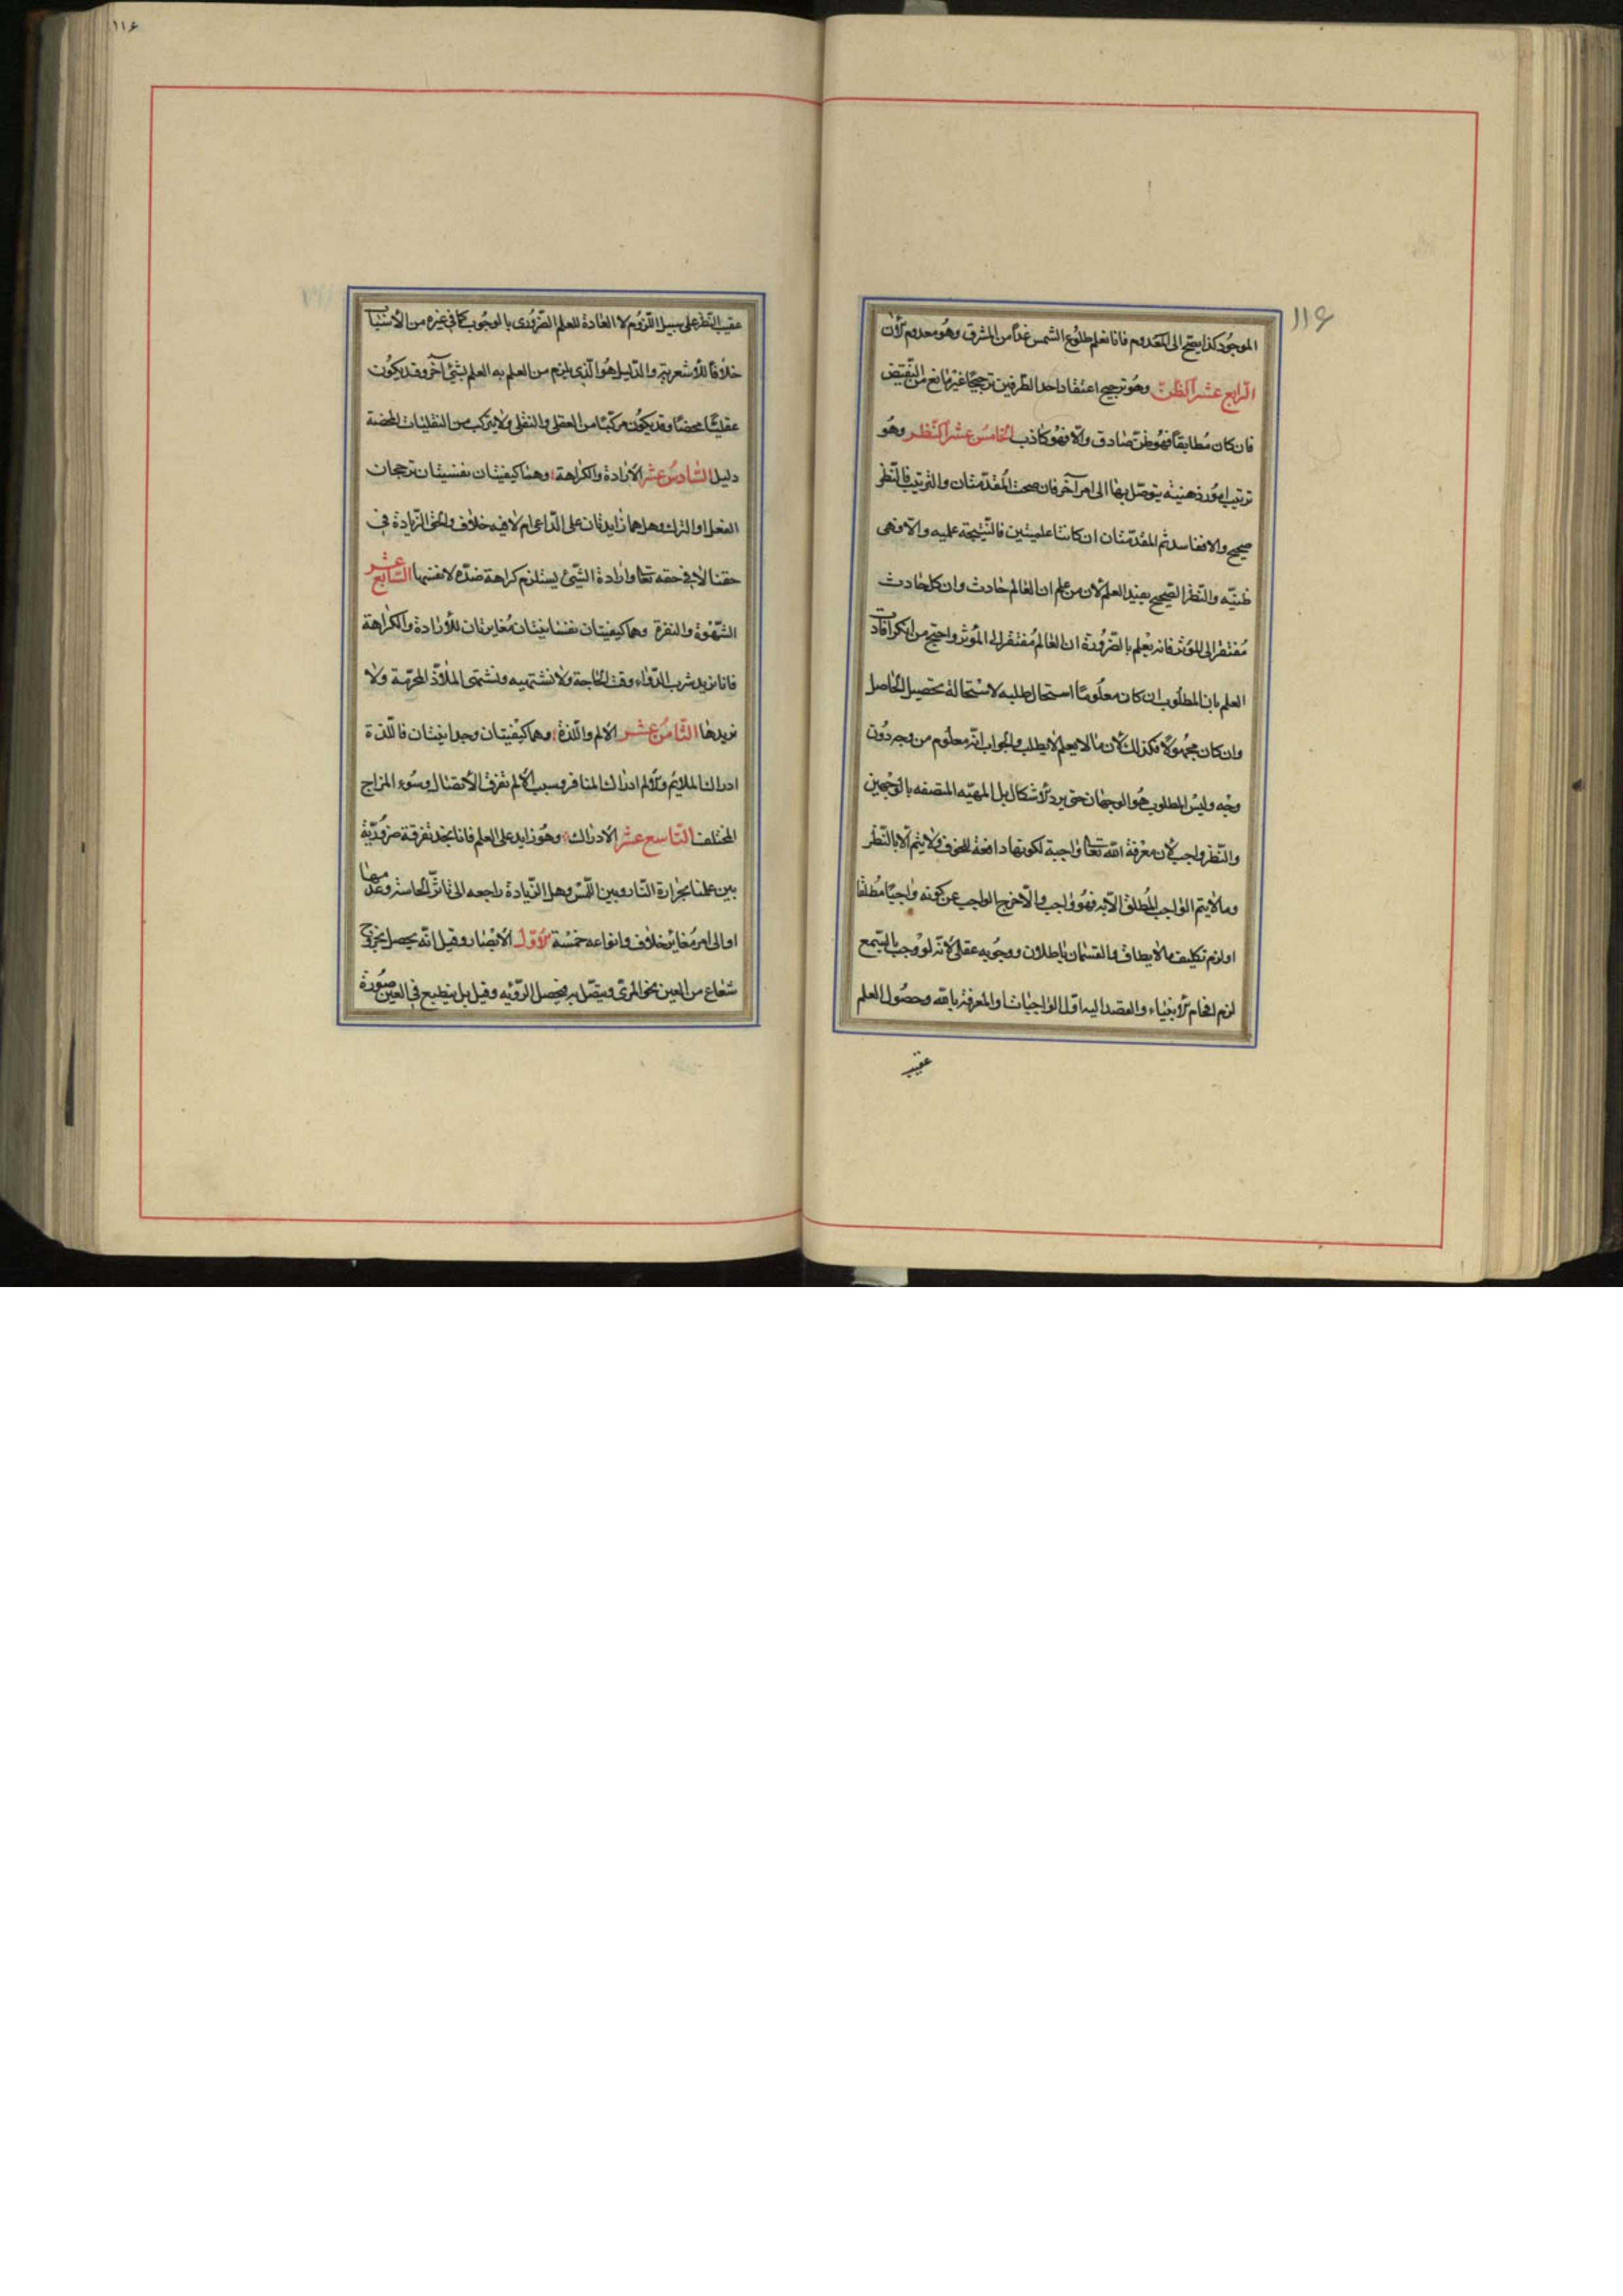 ١١۶
الموجود كذا يصح الى المعدوم فانا نعلم طلوع الشمس غداً من المشرق وهو معدوم الآن
الرابع عشر الظن وهو ترجيح اعتقاد احد الطرفين ترجيحًا غير مانع من النقيض
فان كان مطابقاً فهو ظن صادق والا فهو كاذب الخامس عشر النظر وهو
ترتيب امور ذهنية يتوصل بها الى امر آخر فان صحت المقدمتان والترتيب فالنظر
صحيح والا ففاسد ثم المقدمتان ان كانتا علميتين فالنتيجة علميه والا فهى
ظنيه والنظر الصحيح يفيد العلم لان من علم ان العالم حادث وان كل حادث
مفتقر الى المؤثر فانه يعلم بالضرورة ان العالم مفتقر الى المؤثر واحتج من انكر افادته
العلم بان المطلوب ان كان معلومًا استحال طلبه لاستحالة تحصيل الحاصل
وان كان مجهولا فكذلك لان ما لا يعلم لا يطلب والجواب انه معلوم من وجه دون
وجه وليس المطلوب هو الوجهان حتى يرد الاشكال بل المهيه المتصفه بالوجهين
والنظر واجب لان معرفة الله تعالى واجبة لكونها دافعة للخوف ولا يتم الا بالنظر
وما لا يتم الواجب المطلق الا به فهو واجب والا خرج الواجب عن كونه واجبًا مطلقا
او لزم تكليف ما لا يطاق والقسمان باطلان ووجوبه عقلى لانه لو وجب بالسمع
لزم افحام الانبياء والقصد اليه اول الواجبات او المعرفة بالله وحصول العلم
عقيب
١١۶
عقيب النظر على سبيل اللزوم لا العادة للعلم الضرورى بالوجوب كما فى غيره من الاسباب
خلافًا للاشعرية والدليل هو الذى يلزم من العلم به العلم بشئ آخر وقد يكون
عقليًا محضًا وقد يكون مركبًا من العقلى والنقلى ولا يتركب من النقليات المحضة
دليل السادس عشر الارادة والكراهة وهما كيفيتان نفسيتان ترجحان
الفعل او الترك وهل هما زايدتان على الداعى ام لا فيه خلاف والحق الزيادة فى
حقنا لا فى حقه تعالى وارادة الشئ يستلزم كراهة ضده لا نفسها السابع عشر
الشهوة والنفرة وهما كيفيتان نفسانيتان مغايرتان للارادة والكراهة
فانا نريد شرب الدواء وقت الحاجة ولا نشتهيه ونشتهى الملاذ المحرمة ولا
نريدها الثامن عشر الالم واللذة وهما كيفيتان وجدانيتان فاللذة
ادراك الملائم والالم ادراك المنافر وسبب الالم تفرق الاتصال وسوء المزاج
المختلف التاسع عشر الادراك وهو زايد على العلم فانا نجد تفرقة ضرورية
بين علمنا بحرارة النار وبين اللمس وهل الزيادة راجعه الى تاثر الحاسة وعدمها
او الى امر مغاير خلاف وانواعه خمسة الاول الابصار وقيل انه يحصل بخروج
شعاع من العين نحو المرئى ويتصل به فيحصل الرؤيه وقيل بل ينطبع فى العين صورة